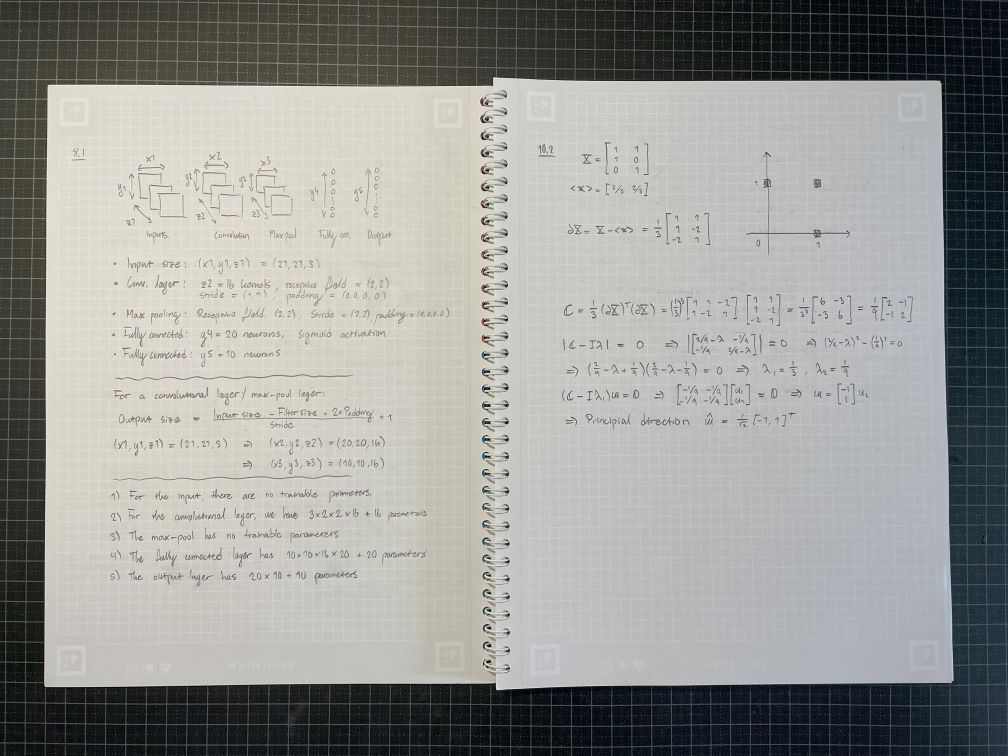 8.1
x1 x2 x3
y1 y2 y3 y4 y5
z1 z2 z3
Inputs Convolution Maxpool Fully con. Output
• Input size: (x1,y1,z1) = (21,21,3)
• Conv. layer: z2 = 16 kernels, receptive field = (2,2)
stride = (1,1), padding = (0,0,0,0)
• Max pooling: Receptive field (2,2), Stride = (2,2), padding = (0,0,0,0)
• Fully connected: y4 = 20 neurons, Sigmoid activation
• Fully connected: y5 = 10 neurons
For a convolutional layer/max-pool layer:
Output size = (Input size - Filter size + 2×Padding)/Stride + 1
(x1,y1,z1) = (21,21,3) ⇒ (x2,y2,z2) = (20,20,16)
⇒ (x3,y3,z3) = (10,10,16)
1) For the input, there are no trainable parameters.
2) For the convolutional layer, we have 3×2×2×16 + 16 parameters
3) The max-pool has no trainable parameters
4) The fully connected layer has 10×10×16×20 + 20 parameters
5) The output layer has 20×10 + 10 parameters
WHITELINES
10.2
X = [1 1; 1 0; 0 1]
<x> = [2/3 2/3]
∂X = X - <x> = 1/3 [1 1; 1 -2; -2 1]
1
0 1
C = 1/3 (∂X)ᵀ(∂X) = (1/3)³ [1 1 -2; 1 -2 1] [1 1; 1 -2; -2 1] = 1/3³ [6 -3; -3 6] = 1/9 [2 -1; -1 2]
|C - Iλ| = 0 ⇒ |[2/9-λ -1/9; -1/9 2/9-λ]| = 0 ⇒ (2/9-λ)² - (1/9)² = 0
⇒ (2/9 - λ + 1/9)(2/9 - λ - 1/9) = 0 ⇒ λ₁ = 1/3, λ₂ = 1/9
(C - Iλ₁)u = 0 ⇒ [-1/9 -1/9; -1/9 -1/9] [u₁; u₂] = 0 ⇒ u = [-1; 1] u₂
⇒ Principial direction û = 1/√2 [-1, 1]ᵀ
WHITELINES